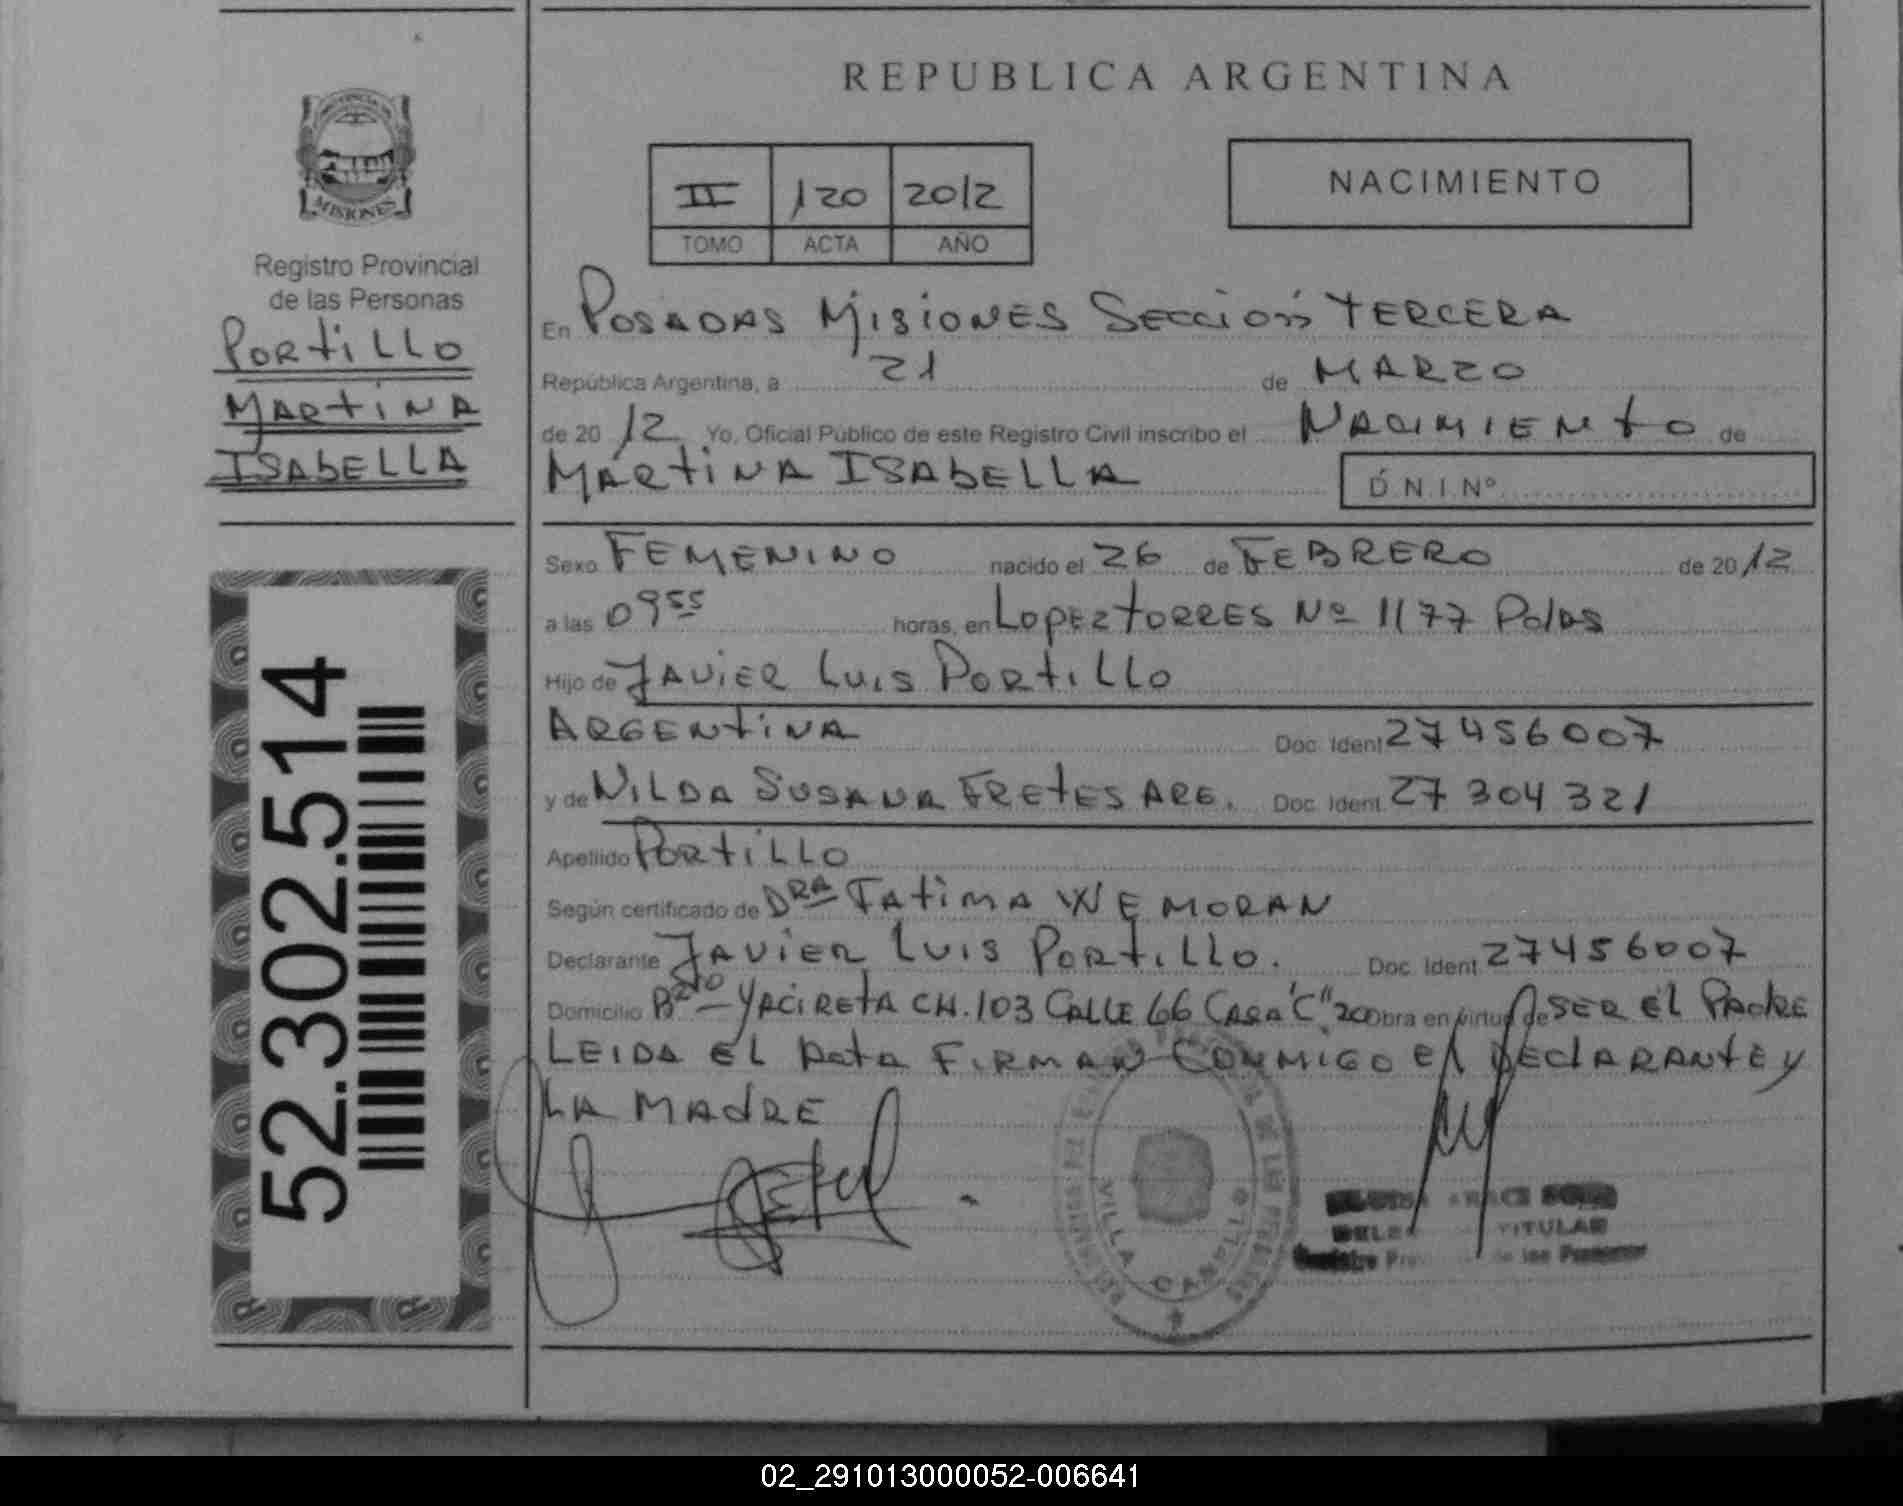 REPUBLICA ARGENTINA
MISIONES
Registro Provincial
de las Personas
PORTILLO
MARTINA
ISABELLA
52.302.514
II 120 2012
TOMO ACTA AÑO
NACIMIENTO
En POSADAS MISIONES SECCION TERCERA
República Argentina, a 21 de MARZO
de 2012 Yo, Oficial Público de este Registro Civil inscribo el NACIMIENTO de
MARTINA ISABELLA D.N.I.Nº
Sexo FEMENINO nacido el 26 de FEBRERO de 2012
a las 09 55 horas, en LOPEZ TORRES Nº 1177 Pdas
Hijo de JAVIER LUIS PORTILLO
ARGENTINA Doc. Ident 27456007
y de NILDA SUSANA FRETES ARG. Doc. Ident 27 304 321
Apellido PORTILLO
Según certificado de DRA FATIMA WE MORAN
Declarante JAVIER LUIS PORTILLO. Doc. Ident 27456007
Domicilio YACIRETA CH. 103 CALLE 66 CASA "C" 200 obra en virtud de SER EL PADRE
LEIDA EL Acta FIRMAN CONMIGO El DEClARANTE y
LA MADRE
VILLA CABELLO
TITULAR
de las Personas
02_291013000052-006641